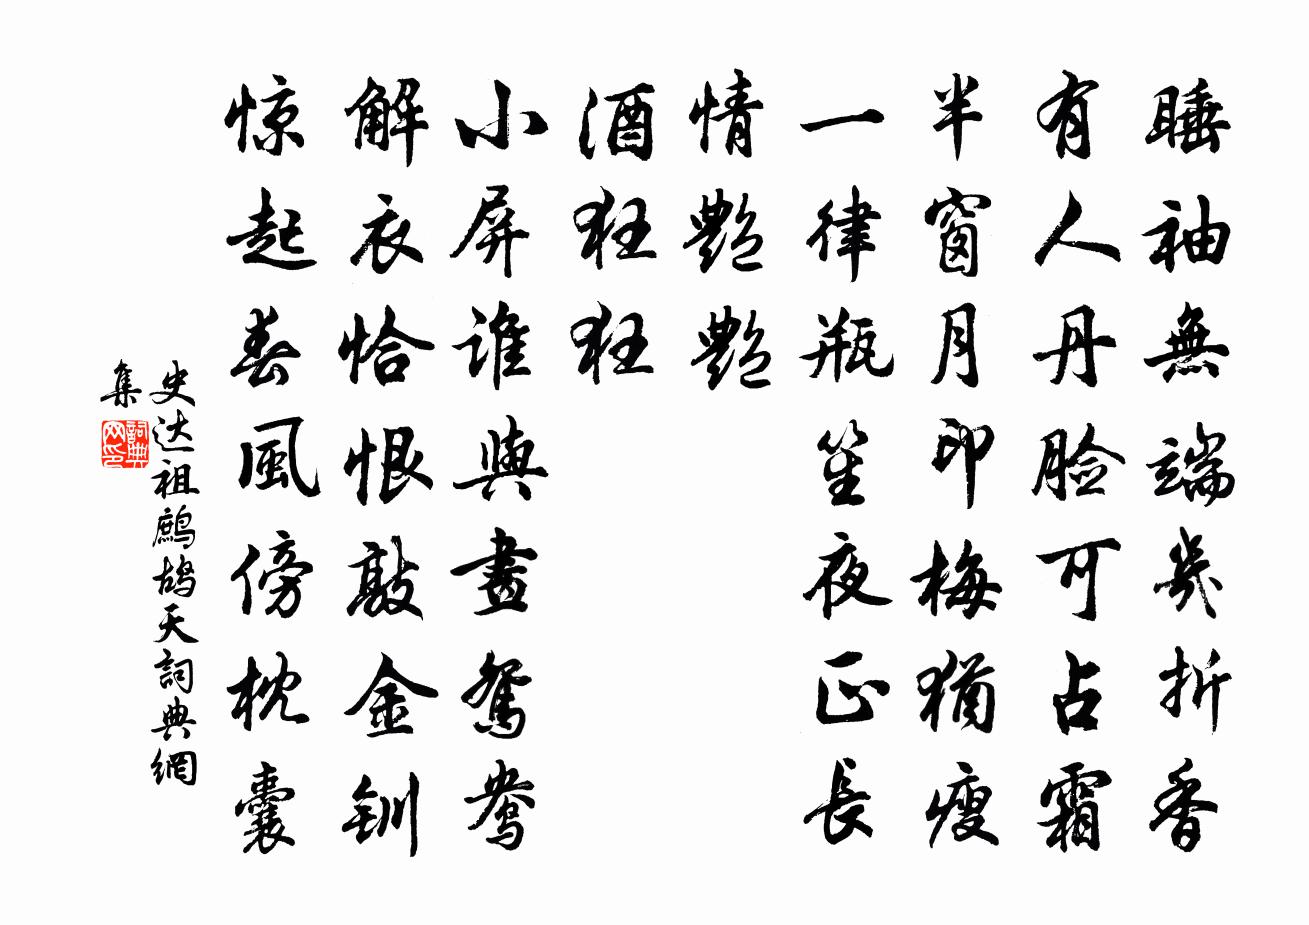 睡袖無端幾折香
有人丹脸可占霜
半窗月印梅猶瘦
一律瓶笙夜正長
情艷艷
酒狂狂
小屏誰與畫鴛鴦
解衣恰恨敲金釧
惊起春風傍枕囊
史达祖鷓鴣天詞典網
集
詞典网印